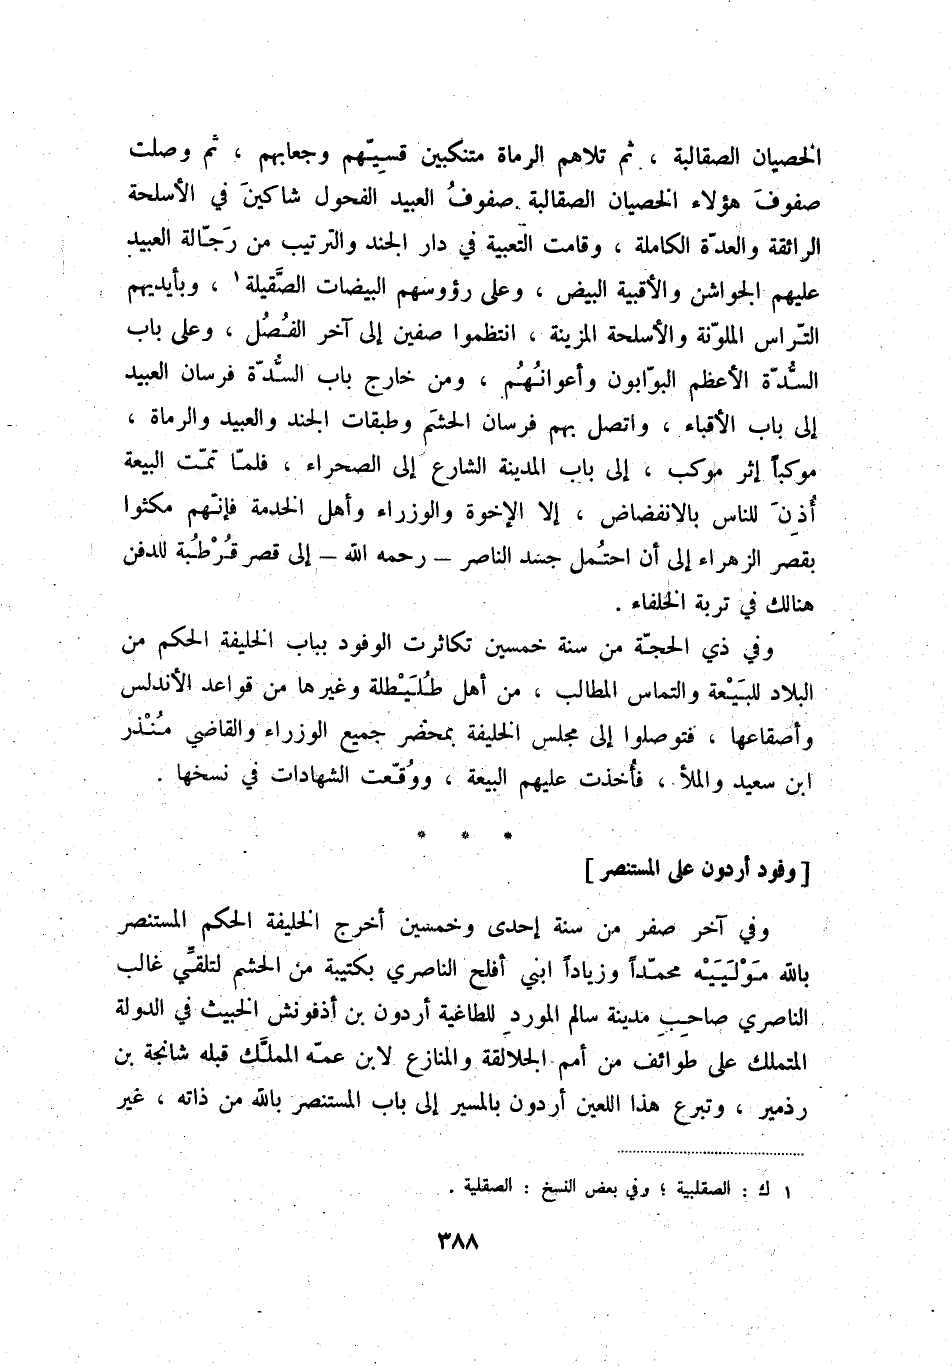 الخصيان الصقالبة ، ثم تلاهم الرماة متنكبين قسيّهم وجعابهم ، ثم وصلت
صفوفَ هؤلاء الخصيان الصقالبة صفوفُ العبيد الفحول شاكينَ في الأسلحة
الرائقة والعدّة الكاملة ، وقامت التعبية في دار الجند والترتيب من رَجّالة العبيد
عليهم الجواشن والأقبية البيض ، وعلى رؤوسهم البيضات الصَّقيلة ١ ، وبأيديهم
التّراس الملوّنة والأسلحة المزينة ، انتظموا صفين إلى آخر الفُصُل ، وعلى باب
السُّدّة الأعظم البوّابون وأعوانُهُم ، ومن خارج باب السُّدّة فرسان العبيد
إلى باب الأقباء ، واتصل بهم فرسان الحشَم وطبقات الجند والعبيد والرماة ،
موكباً إثر موكب ، إلى باب المدينة الشارع إلى الصحراء ، فلمّا تمّت البيعة
أُذِنَ للناس بالانفضاض ، إلا الإخوة والوزراء وأهل الخدمة فإنّهم مكثوا
بقصر الزهراء إلى أن احتُمل جسد الناصر – رحمه الله – إلى قصر قُرْطُبة للدفن
هنالك في تربة الخلفاء .
وفي ذي الحجّة من سنة خمسين تكاثرت الوفود بباب الخليفة الحكم من
البلاد للبَيْعة والتماس المطالب ، من أهل طُلَيْطلة وغيرها من قواعد الأندلس
وأصقاعها ، فتوصلوا إلى مجلس الخليفة بمحضر جميع الوزراء والقاضي مُنْذر
ابن سعيد والملأ ، فأُخذت عليهم البيعة ، ووُقّعت الشهادات في نسخها .
* * *
[ وفود أردون على المستنصر ]
وفي آخر صفر من سنة إحدى وخمسين أخرج الخليفة الحكم المستنصر
بالله مَوْلَيَيْه محمّداً وزياداً ابني أفلح الناصري بكتيبة من الحشم لتلقّي غالب
الناصري صاحبِ مدينة سالم المورد للطاغية أردون بن أذفونش الخبيث في الدولة
المتملك على طوائف من أمم الجلالقة والمنازع لابن عمّه المملَّك قبله شانجة بن
رذمير ، وتبرع هذا اللعين أردون بالمسير إلى باب المستنصر بالله من ذاته ، غير
١ ك : الصقلبية ؛ وفي بعض النسخ : الصقلية .
٣٨٨